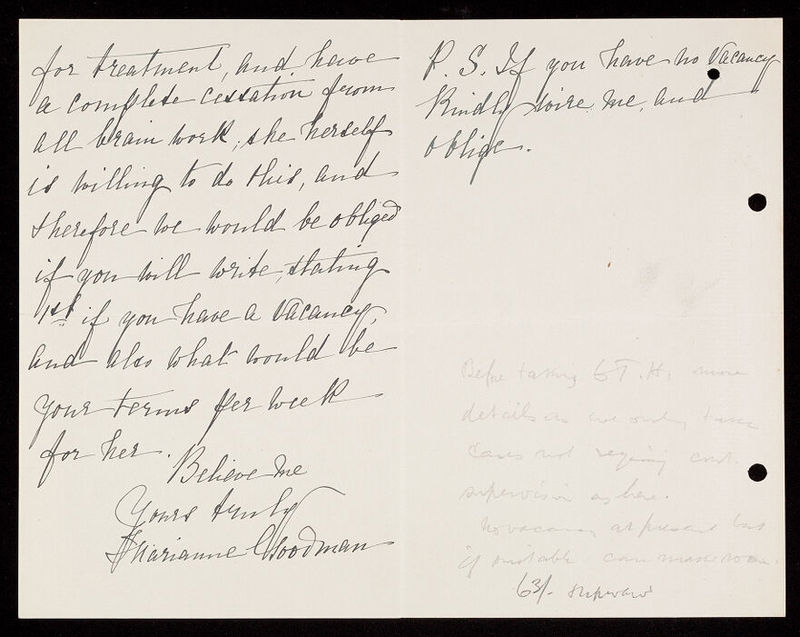 for treatment, and have
a complete cessation from
all brain work, she herself
is willing to do this, and
therefore we would be obliged
if you will write, stating
1st if you have a vacancy,
and also what would be
your terms per week
for her.
Believe me
Yours truly
Marianne Woodman
P. S. If you have no vacancy
kindly wire me, and
oblige.
Before taking to T. H. more
details as we only take
cases not requiring const.
supervision as here.
No vacancy at present but
if suitable can make room.
63/- upwards